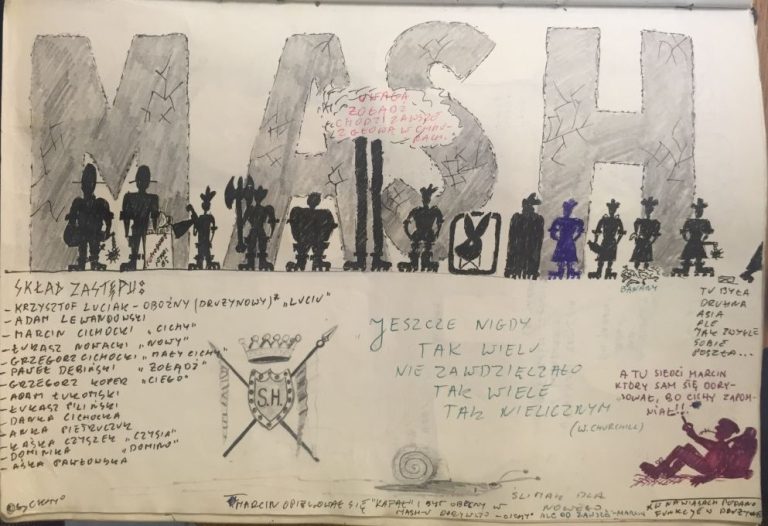 MASH
UWAGA
ŻOŁĄDŹ
CHODZI ZAWSZE
Z GŁOWĄ W CHMU-
RACH.
BANANY
TU BYŁA
DRUHNA
ASIA
ALE
JAK ZWYKLE
SOBIE
POSZŁA...
SKŁAD ZASTĘPU:
- KRZYSZTOF LUCIAK - OBOŹNY (DRUŻYNOWY) "LUCIU"
- ADAM LEWANDOWSKI
- MARCIN CICHOCKI "CICHY"
- ŁUKASZ NOWACKI "NOWY"
- GRZEGORZ CICHOCKI "MAŁY CICHY"
- PAWEŁ DĘBIŃSKI "ŻOŁĄDŹ"
- GRZEGORZ KOPER "CIEGO"
- ADAM ŁUKOMSKI
- ŁUKASZ PILIŃSKI
- DANKA CICHOCKA
- ANKA PIETRUCZUK
- KAŚKA CZYSZEK "CZYSIA"
- DOMINIKA "DOMINO"
- AŚKA PAWŁOWSKA
S.H.
JESZCZE NIGDY
TAK WIELU
NIE ZAWDZIĘCZAŁO
TAK WIELE
TAK NIELICZNYM
(W. CHURCHILL)
A TU SIEDZI MARCIN
KTÓRY SAM SIĘ DORY-
SOWAŁ, BO CICHY ZAPOM-
NIAŁ!!
ŚLIMAK DLA
NOWEGO
© by CICHY
MARCIN OPIEKOWAŁ SIĘ "KAFAR" I BYŁ OBECNY W
MASH-U
ALE OD ZAWSZE - MARCIN
W NAWIASACH PODANO
FUNKCJE W DRUŻYNIE